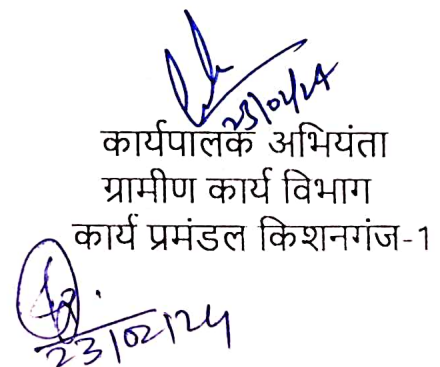 23/02/24
कार्यपालक अभियंता
ग्रामीण कार्य विभाग
कार्य प्रमंडल किशनगंज-1
23/02/24